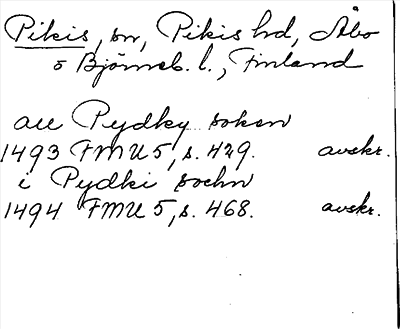 Pikis, sn, Pikis hd, Åbo
o Björneb. l., Finland
au Pydky soken
1493 FMU 5, s. 429. avskr.
i Pydki sochn
1494 FMU 5, s. 468. avskr.